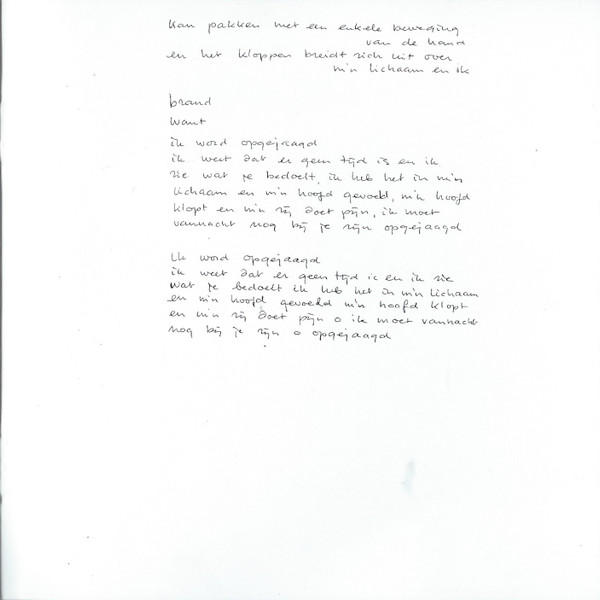 kan pakken met een enkele beweging
van de hand
en het kloppen breidt zich uit over
m'n lichaam en ik
brand
want
ik word opgejaagd
ik weet dat er geen tijd is en ik
zie wat je bedoelt, ik heb het in m'n
lichaam en m'n hoofd gevoeld, m'n hoofd
klopt en m'n zij doet pijn, ik moet
vannacht nog bij je zijn opgejaagd
Ik word opgejaagd
ik weet dat er geen tijd is en ik zie
wat je bedoelt ik heb het in m'n lichaam
en m'n hoofd gevoeld m'n hoofd klopt
en m'n zij doet pijn o ik moet vannacht
nog bij je zijn o opgejaagd